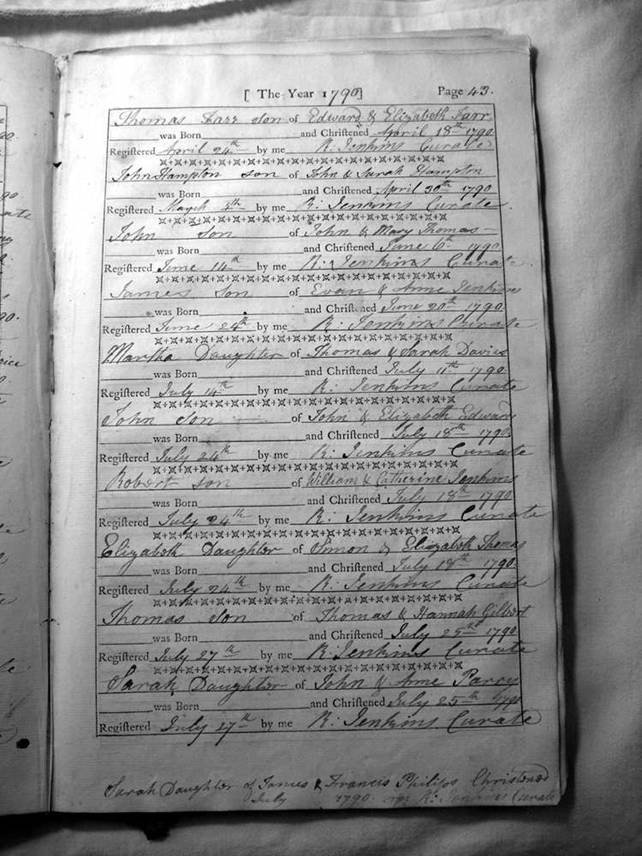 [ The Year 1790 ] Page 43.
Thomas Farr son of Edward & Elizabeth Farr
was Born and Christened April 18th 1790
Registered April 24th by me R. Jenkins Curate
John Hampton son of John & Sarah Hampton
was Born and Christened April 30th 1790
Registered March 4th by me R: Jenkins Curate
John Son of John & Mary Thomas
was Born and Christened June 6th 1790
Registered June 14th by me R: Jenkins Curate
James Son of Evan & Anne Jenkins
was Born and Christened June 20th 1790
Registered June 24th by me R: Jenkins Curate
Martha Daughter of Thomas & Sarah Davies
was Born and Christened July 11th 1790
Registered July 14th by me R: Jenkins Curate
John Son of John & Elizabeth Edwards
was Born and Christened July 18th 1790
Registered July 24th by me R: Jenkins Curate
Robert Son of William & Catherine Jenkins
was Born and Christened July 18th 1790
Registered July 24th by me R: Jenkins Curate
Elizabeth Daughter of Simon & Elizabeth Thomas
was Born and Christened July 18th 1790
Registered July 24th by me R: Jenkins Curate
Thomas Son of Thomas & Hannah Gilbert
was Born and Christened July 25th 1790
Registered July 27th by me R: Jenkins Curate
Sarah Daughter of John & Anne Parry
was Born and Christened July 25th 1790
Registered July 27th by me R: Jenkins Curate
Sarah Daughter of James & Francis Philips Christened
July 1790 R: Jenkins Curate